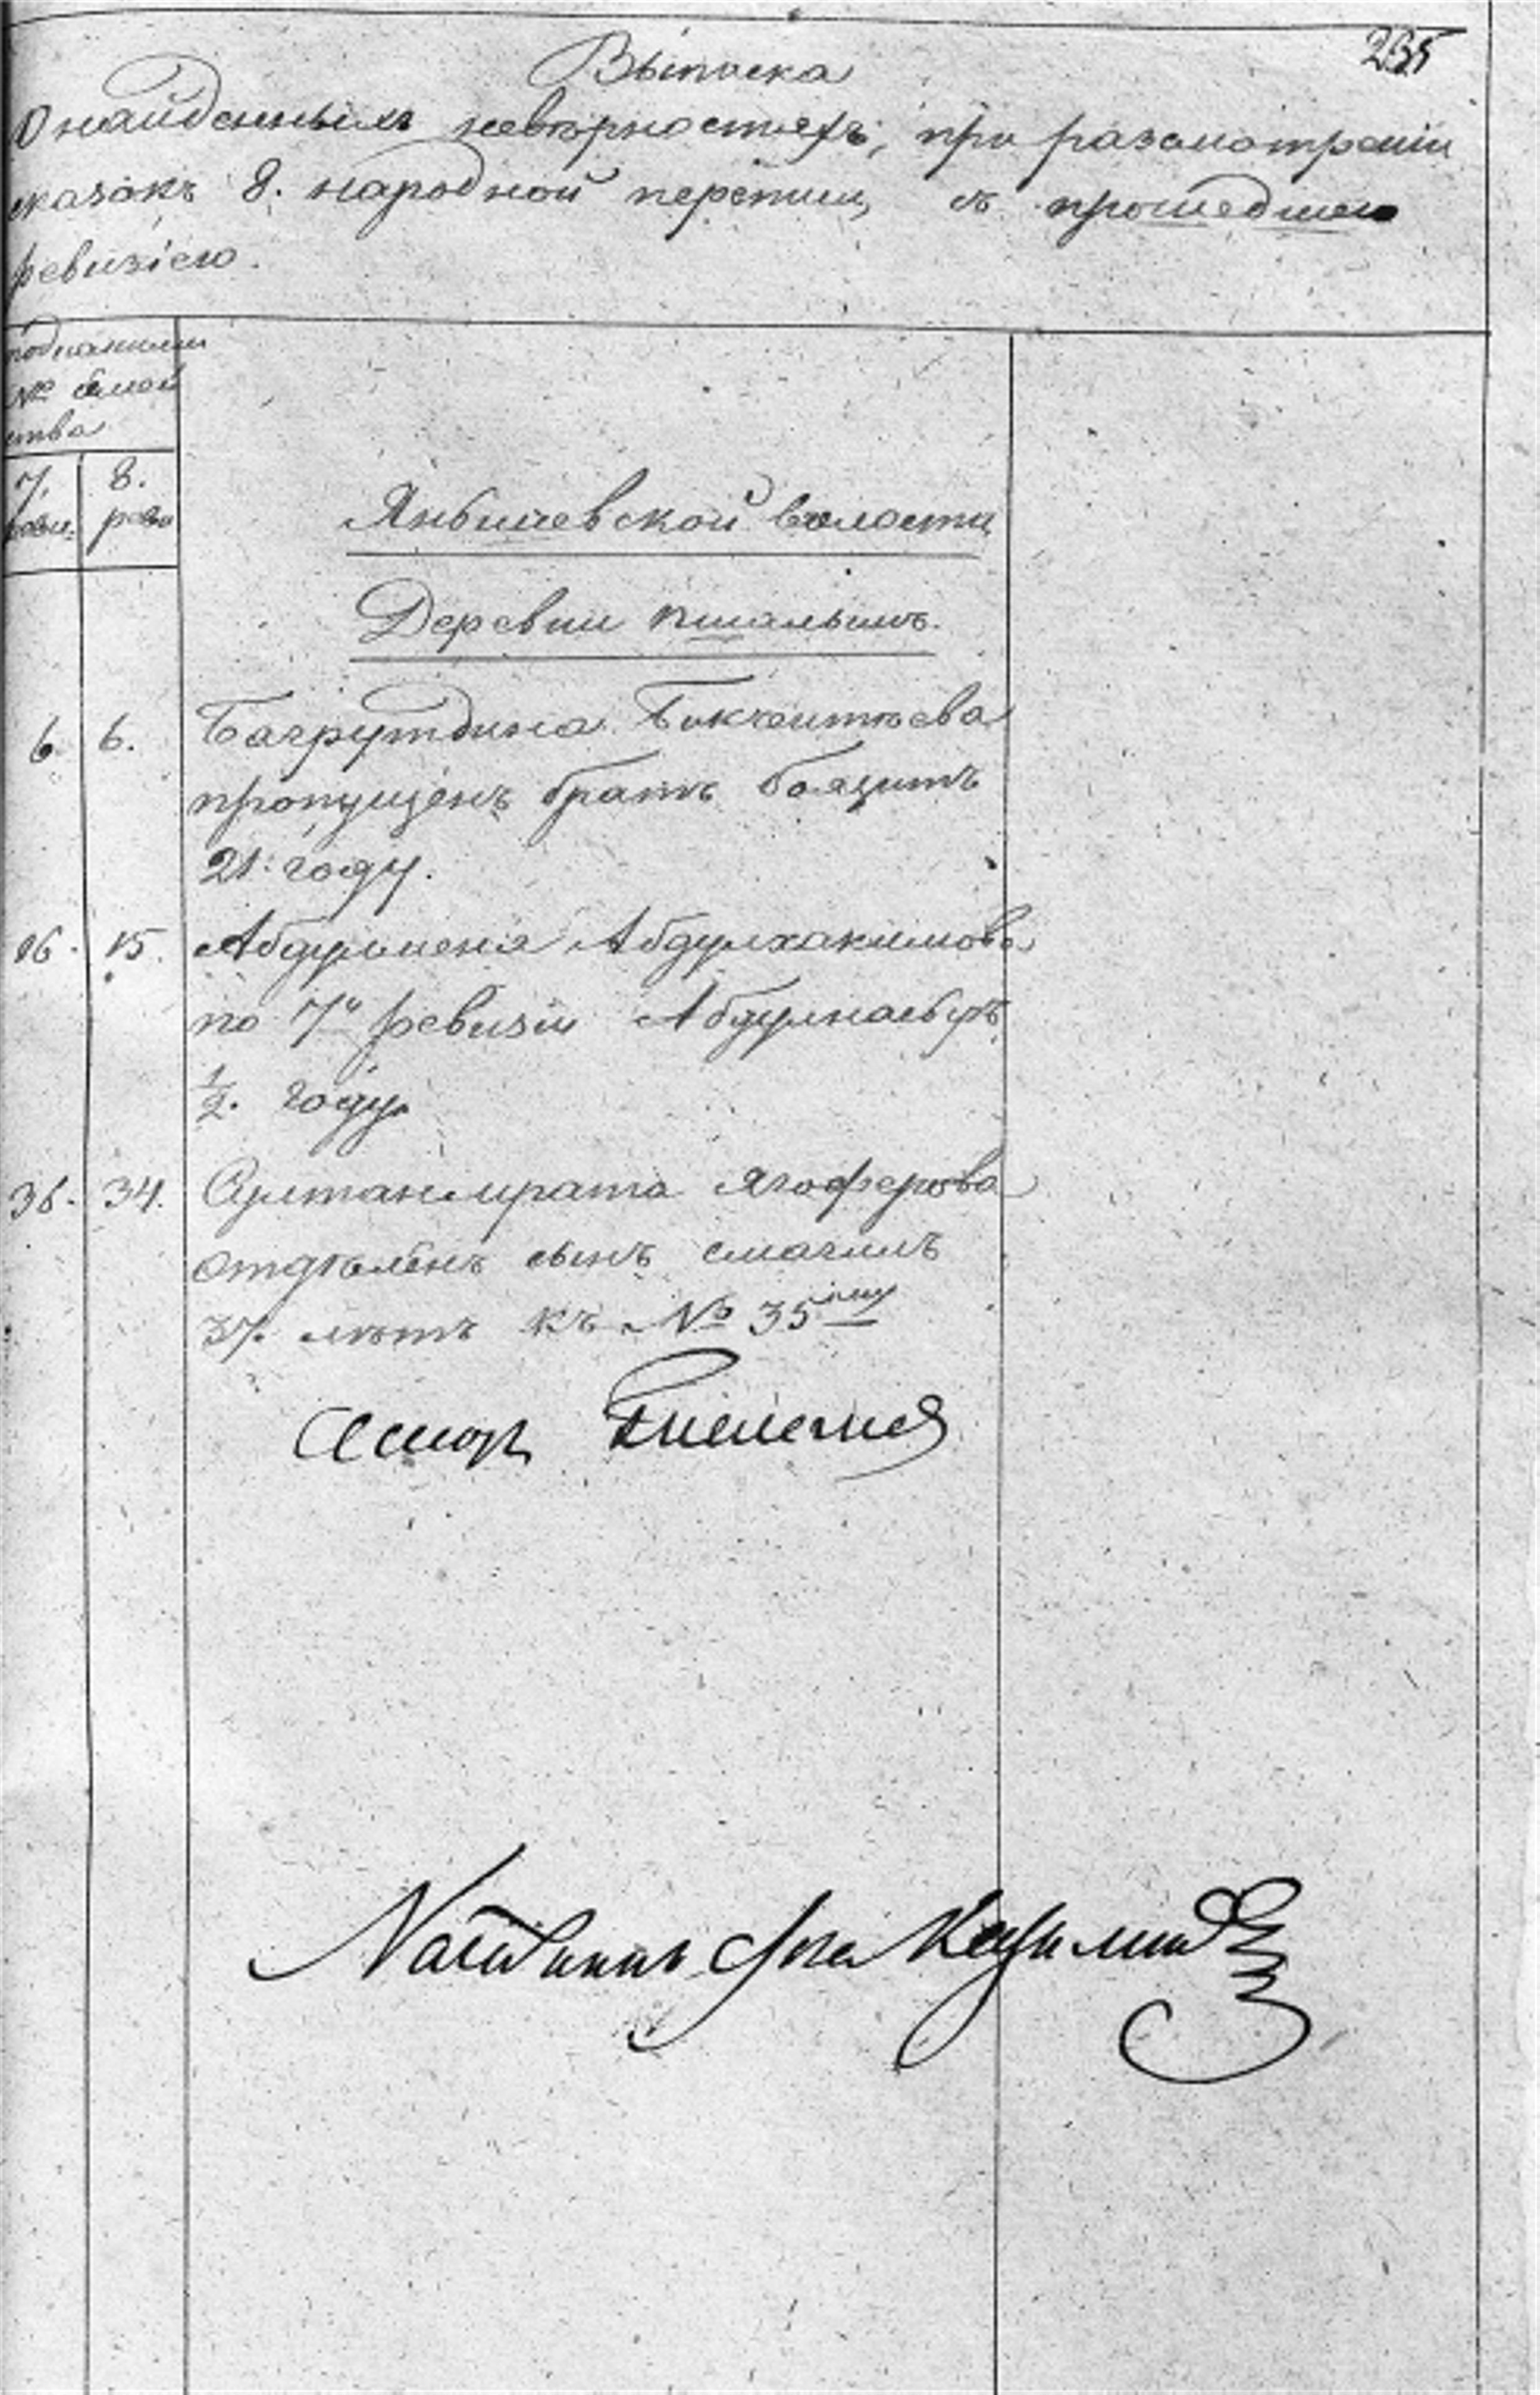 235
Выписка
О найденныхъ невѣрностяхъ, при разсмотреніи
сказокъ 8. народной переписи, съ прошедшею
ревизіею.
подъ какими
№ семей
ства
7. 8.
реви: реви
Янышевской волости
Деревни
6. 6. Бачрутдина Бикчентѣева
пропущенъ братъ баязитъ
21. году.
16. 15. Абдулменя Абдулхакимова
по 7й ревизіи Абдулнасыръ
1/2. году
36. 34. Султанмрата Ягоферова
отдѣленъ сынъ смагилъ
37. лѣтъ къ № 35му